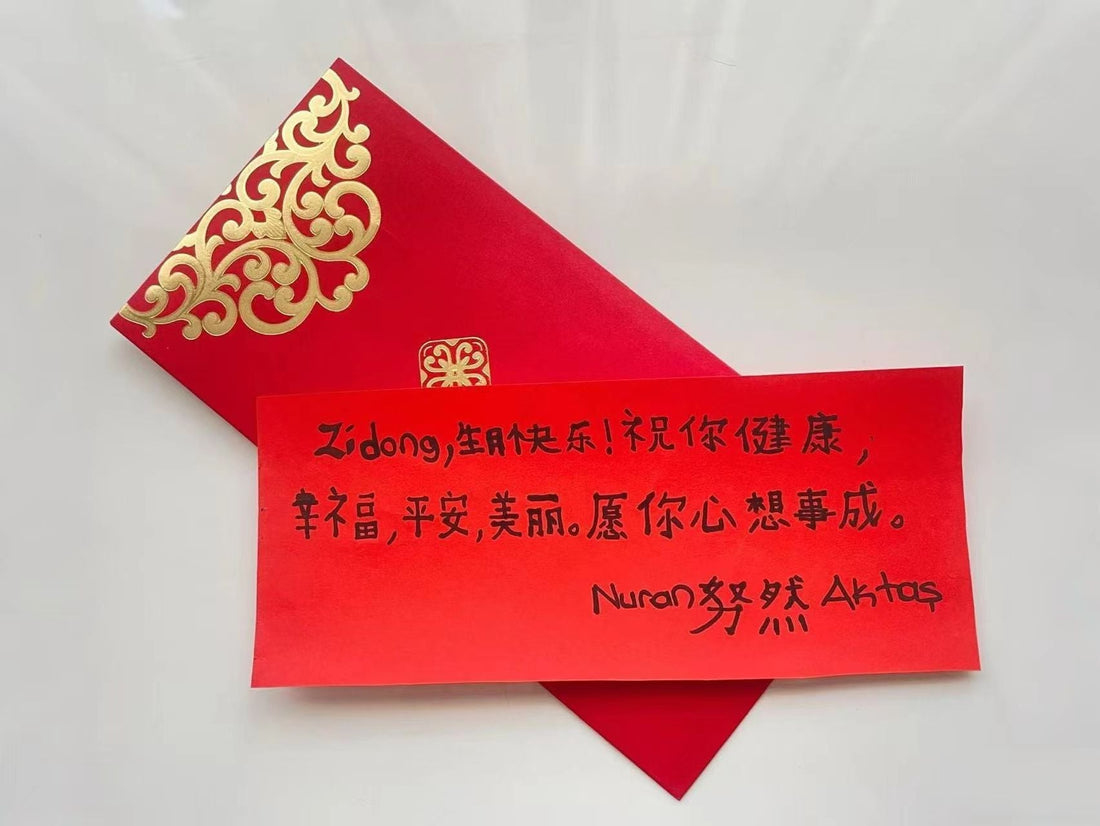 Zidong,生日快乐!祝你健康,
幸福,平安,美丽。愿你心想事成。
Nuran努然 Aktaş